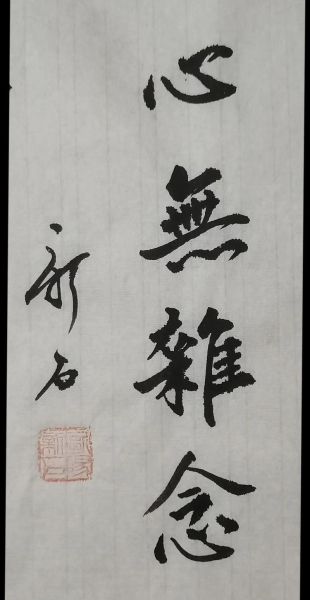 心無雜念
新石